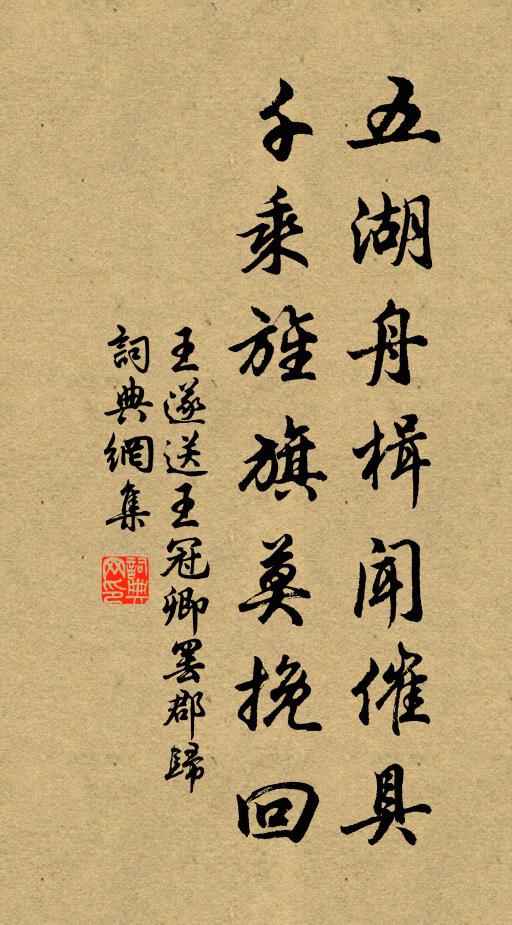 五湖舟楫聞催具
千乘旌旗莫挽回
王遂送王冠卿罷郡歸
詞典網集
詞典網印